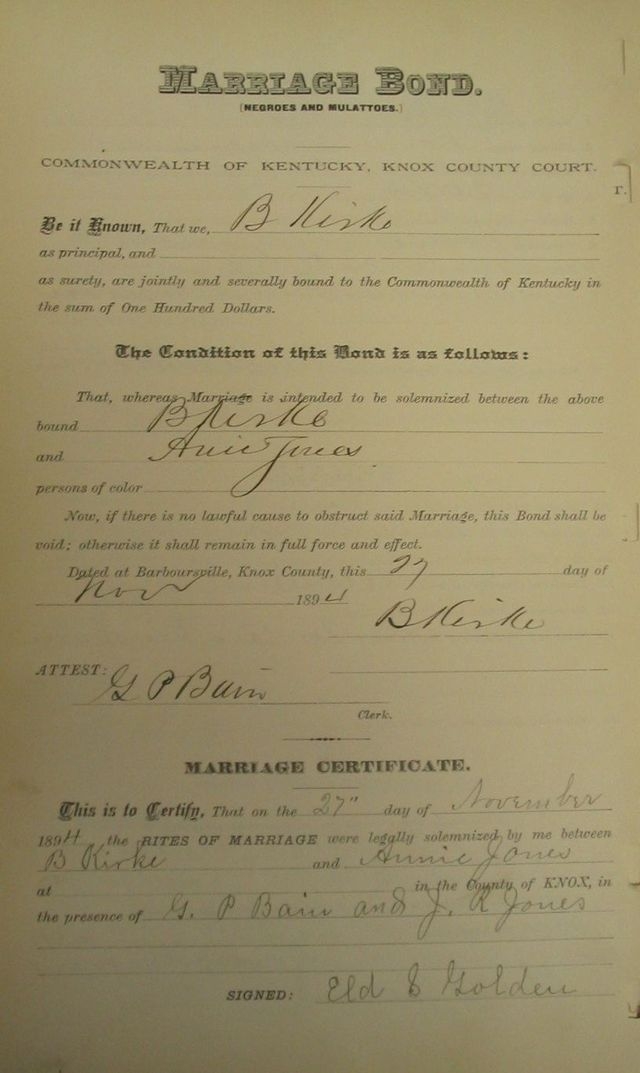 MARRIAGE BOND.
(NEGROES AND MULATTOES.)
COMMONWEALTH OF KENTUCKY, KNOX COUNTY COURT.
r.
Be it Known, That we, B Kirke
as principal, and
as surety, are jointly and severally bound to the Commonwealth of Kentucky in
the sum of One Hundred Dollars.
The Condition of this Bond is as follows:
That, whereas Marriage is intended to be solemnized between the above
bound B Kirke
and Anie Jones
persons of color
Now, if there is no lawful cause to obstruct said Marriage, this Bond shall be
void; otherwise it shall remain in full force and effect.
Dated at Barboursville, Knox County, this 27 day of
Nov 1894
B Kirke
ATTEST:
G P Bain
Clerk.
MARRIAGE CERTIFICATE.
This is to Certify, That on the 27" day of November
1894 the RITES OF MARRIAGE were legally solemnized by me between
B Kirke and Annie Jones
at in the County of KNOX, in
the presence of G. P Bain and J. R Jones
SIGNED: Eld S Golden